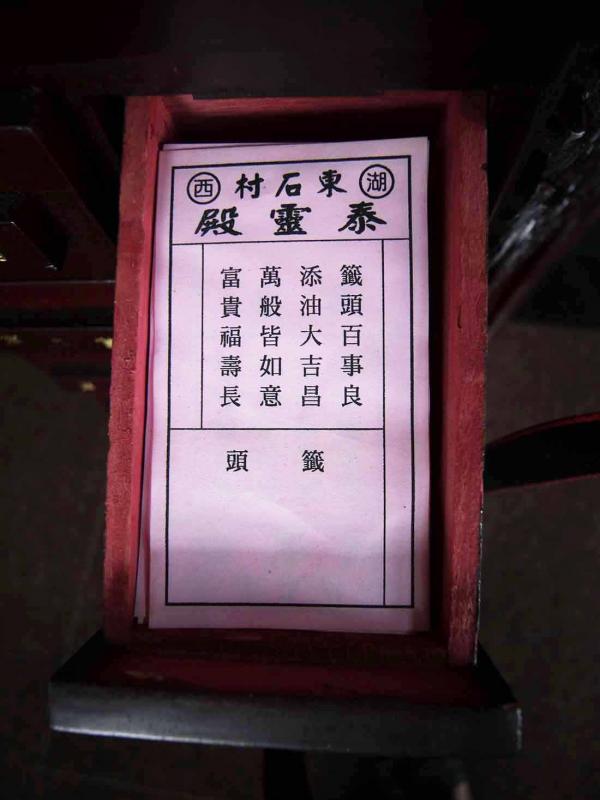 湖東石村西
泰靈殿
籤頭百事良
添油大吉昌
萬般皆如意
富貴福壽長
籤頭